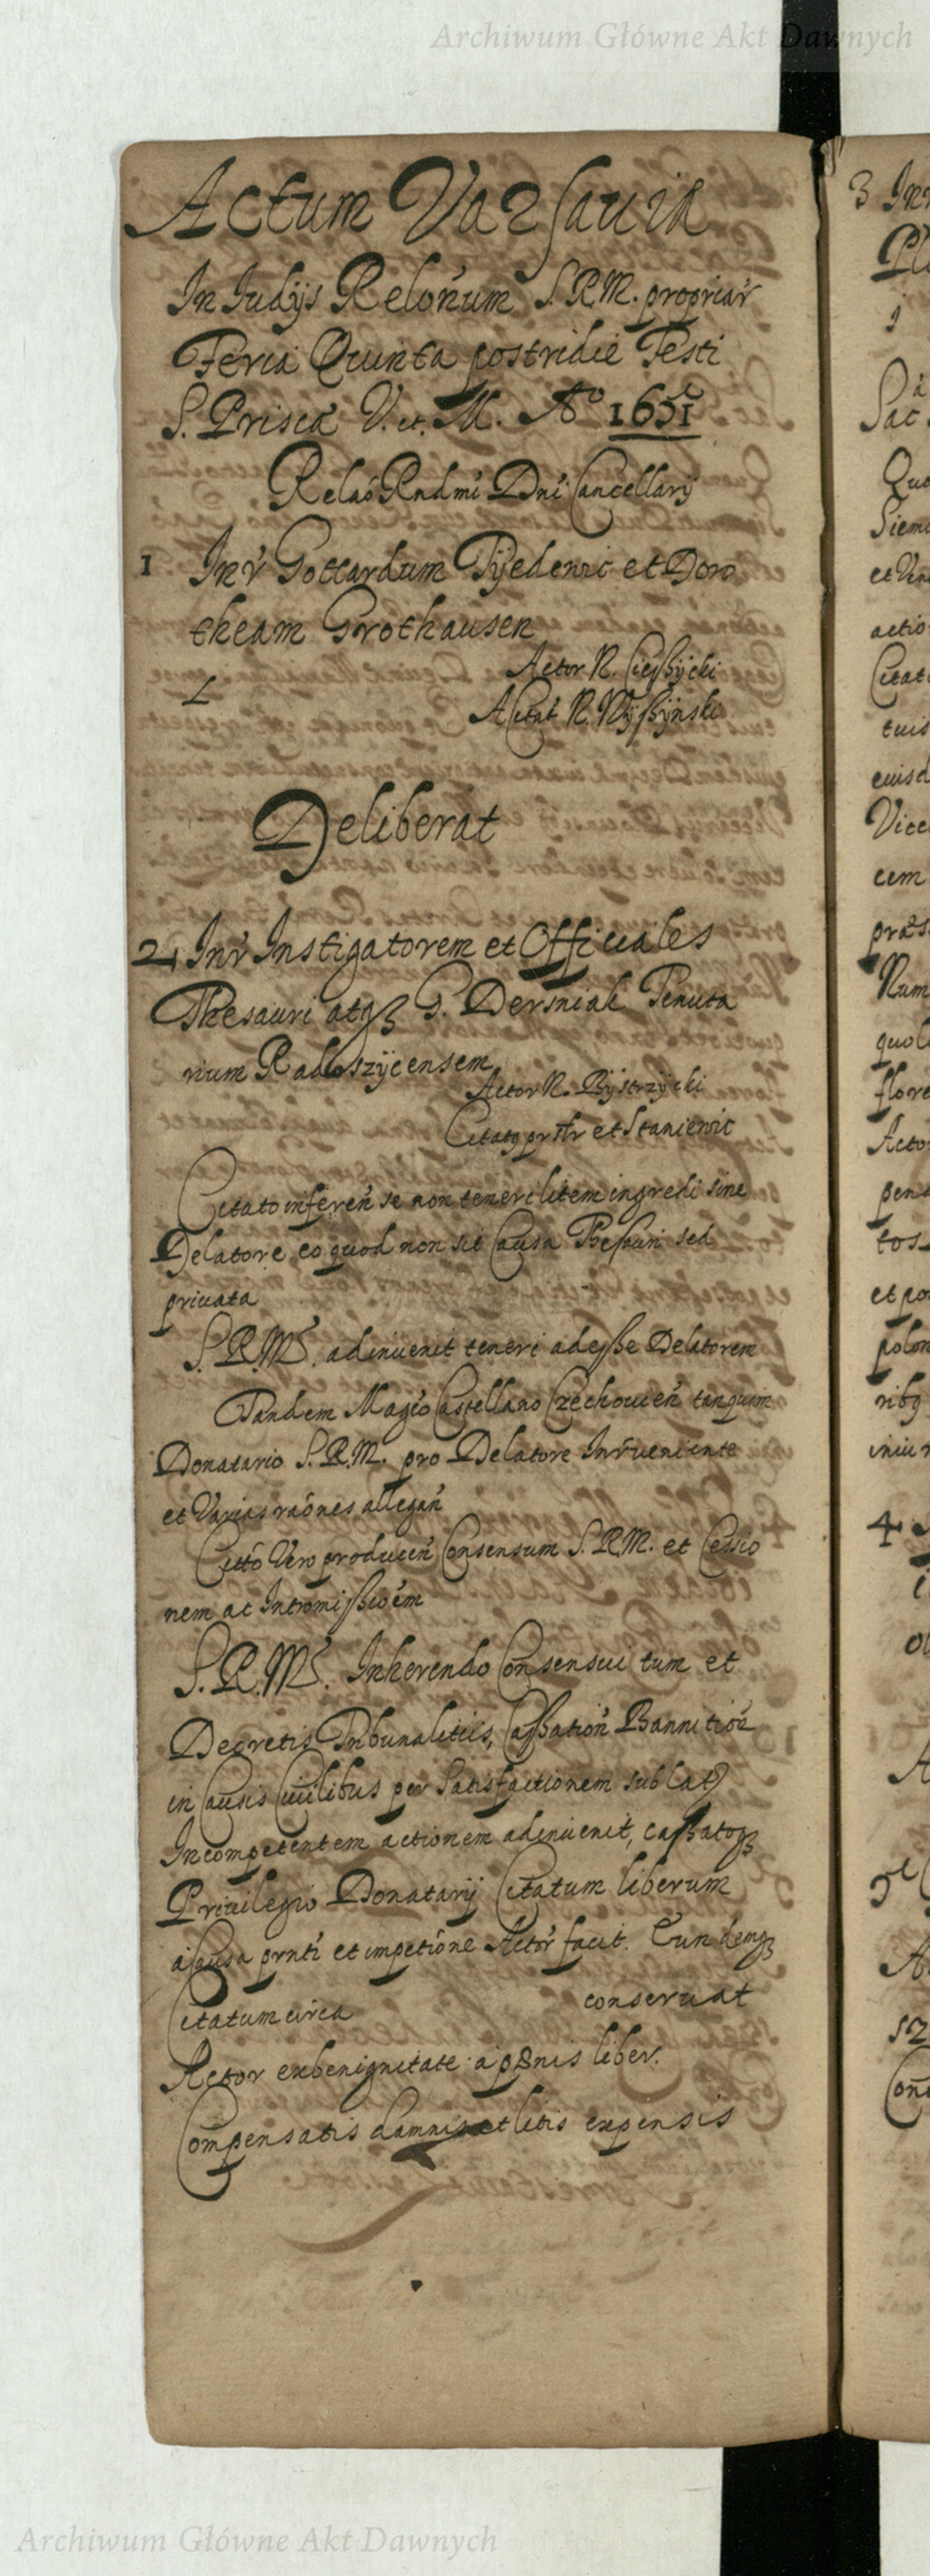 Archiwum Główne Akt Dawnych
Actum Varsaviæ
In Judijs Relõnum S.R.M. propriar̃
Feria Quinta postridie Festi
S. Priscæ V. et. M. Aº 1651
Relaõ Rndmi Dni Cancellarij
1 Inr̃ Gottardum Tÿedewic et Doro
theam Grothausen
Actor N. Cieszÿcki
Citat N. Wÿszÿnski
Deliberat
2 Inr̃ Instigatorem et Officiales
Thesauri atqз G. Dersniak Tenuta
rium Radoszÿcensem
Actor N. Bÿstrzÿcki
et Staniewic
Citato inferen̄ se non teneri litem ingredi sine
Delatore eo quod non sit Causa Thesauri sed
priuata
S.R.Mᵗˢ. adinuenit teneri adesse Delatorem
Tandem Magᶜo Castellano Czechouien̄ tanquam
Donatario S.R.M. pro Delatore Inr̃ueniente
et Varias raõnes allegan̄
Citto Vero producen̄ Consensum S.R.M. et Cessio
nem ac Intromissioẽm
S.R.Mᵗˢ. Inherendo Consensui tum et
Decretis Tribunalitiis, Cassation̄ Bannition̄
in Causis Ciuilibus per Satisfactionem sublat
Incompetentem actionem adinuenit, cassatoqз
Priuilegio Donatarij Citatum liberum
a Causa prnti et impetiõne Actor̃ facit. Eundemqз
Citatum circa conseruat
Actor ex benignitate a pænis liber.
Compensatis damnis et litis expensis
3
4
Archiwum Główne Akt Dawnych